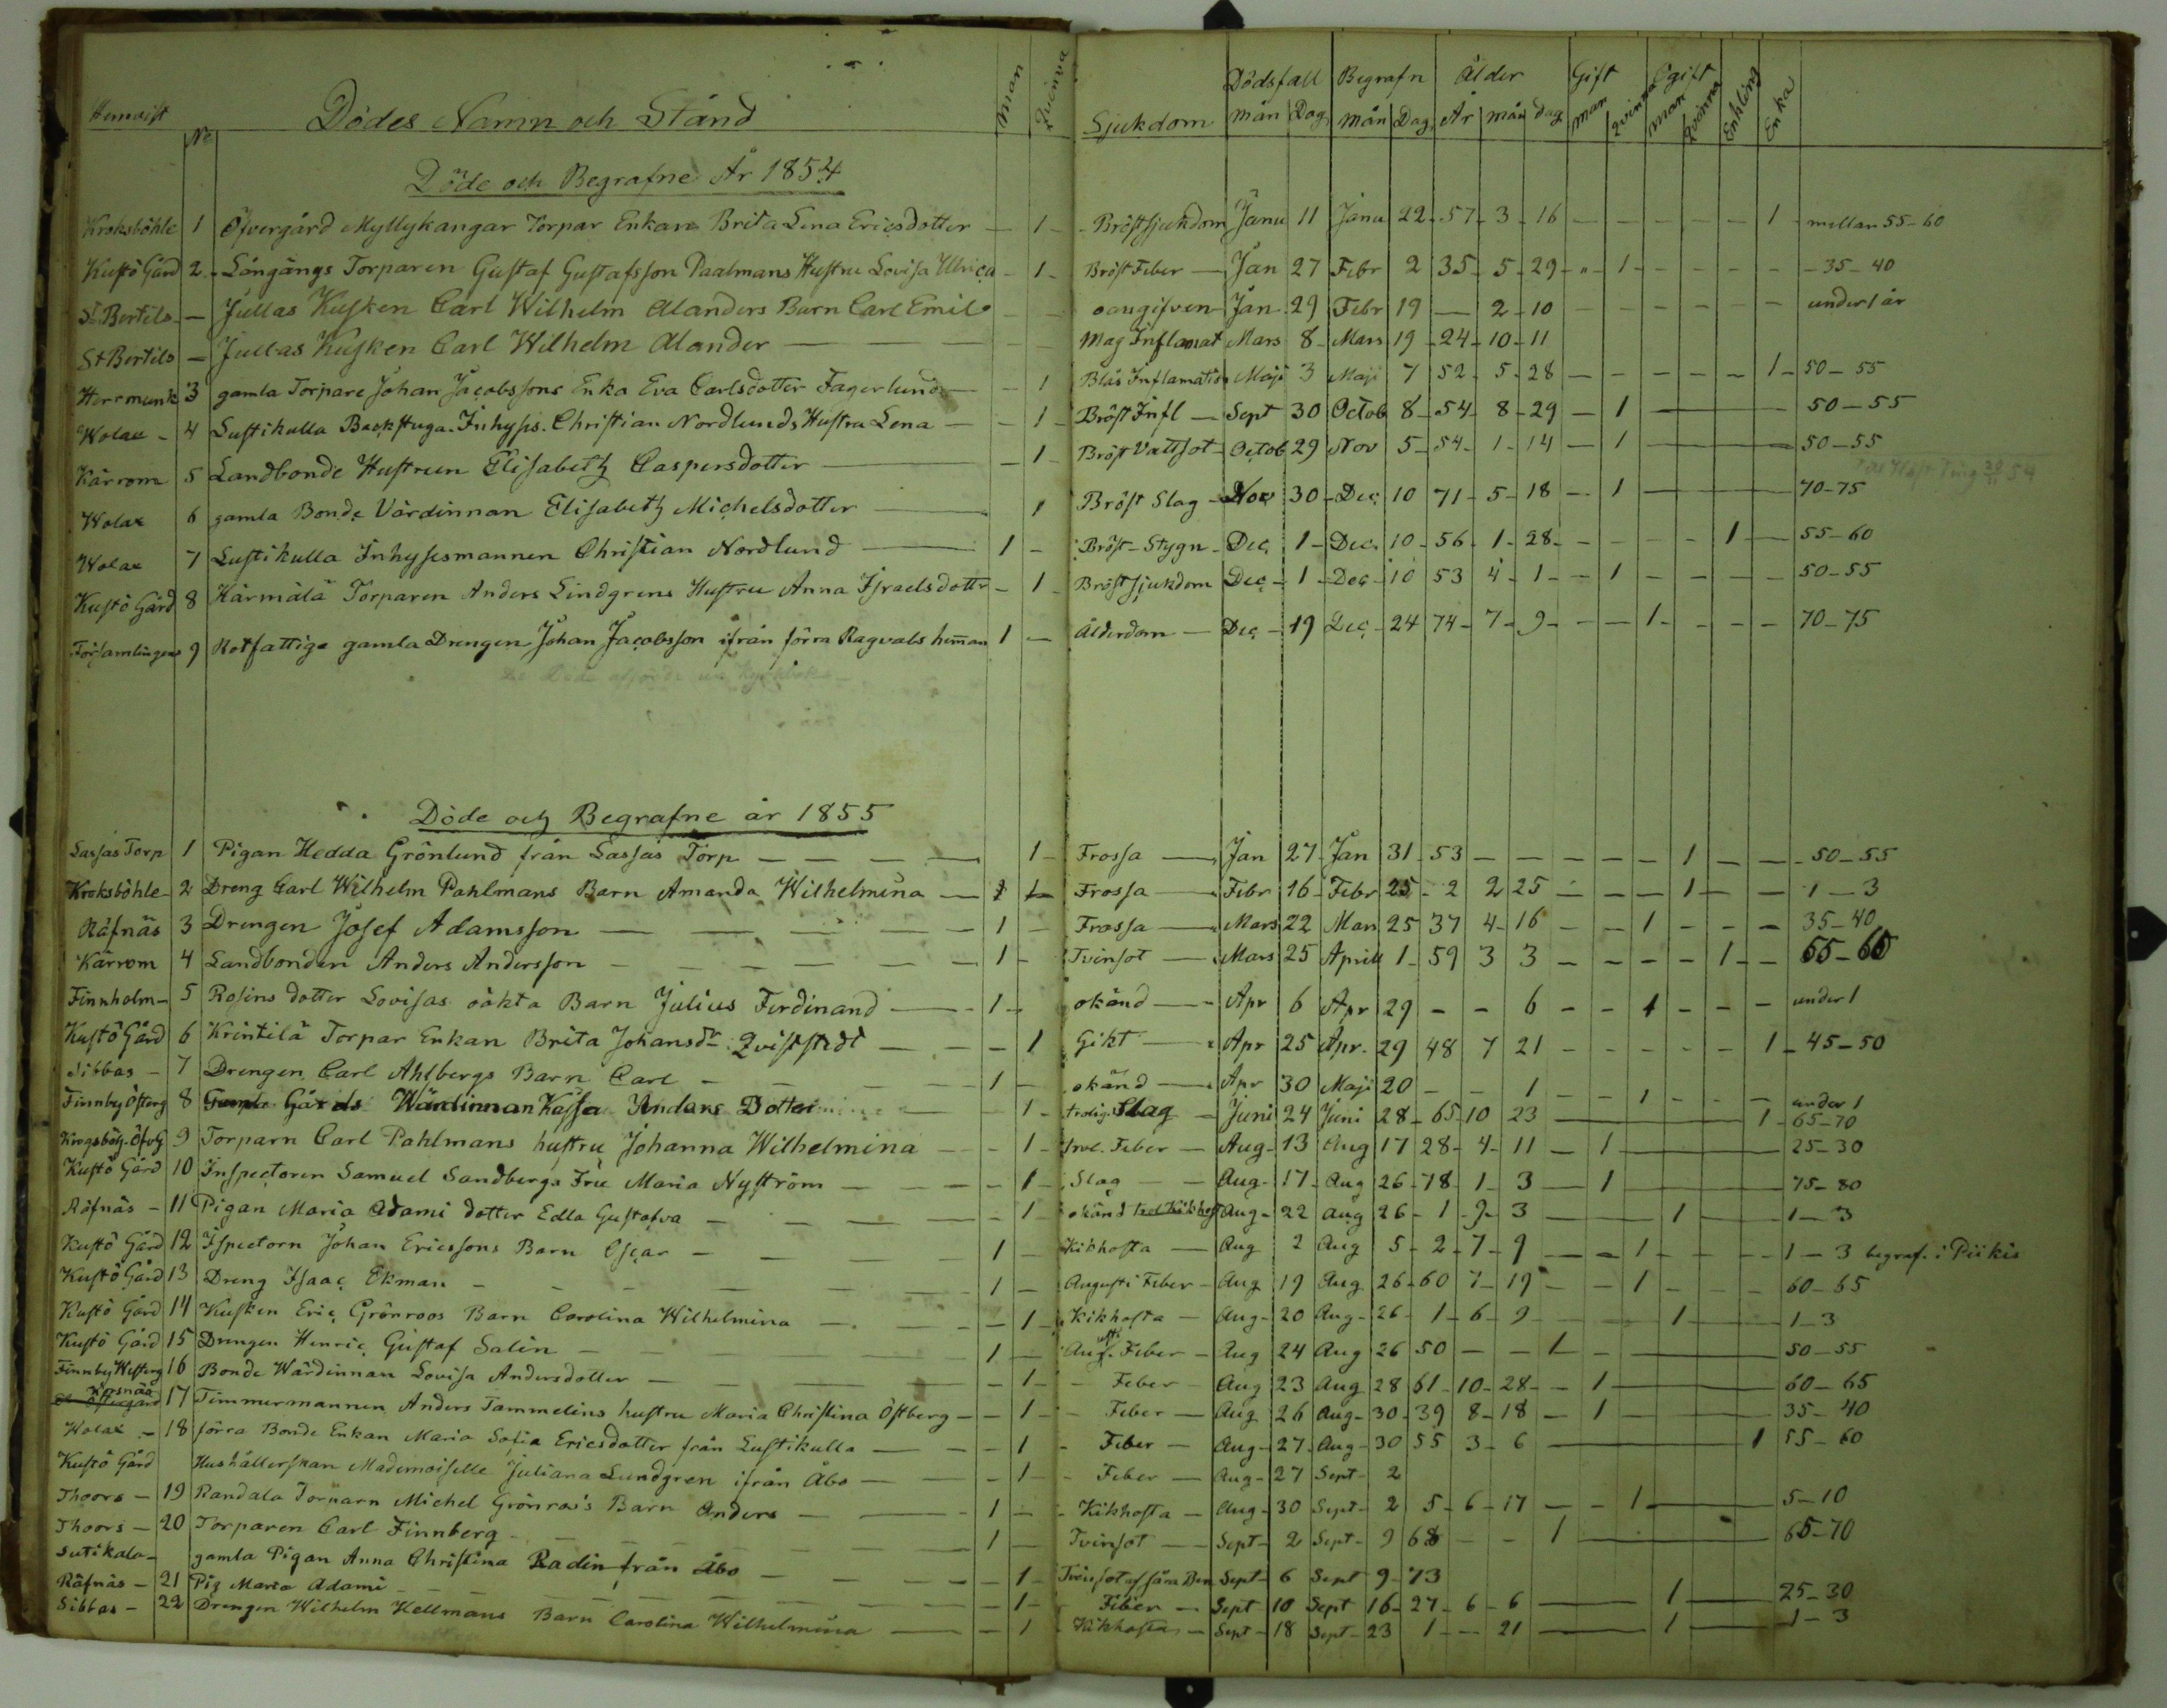 Hemvist No Dödes Namn och Stånd Man Qvinna Sjukdom Dödsfall mån Dag Begrafn mån Dag Ålder År mån dag Gift man qvinna Ogift man Qvinna Enkling Enka
Döde och Begrafne År 1854
Kroksböhle 1 Öfvergård Myllykangar Torpar Enkan Brita Lena Ericsdotter — 1 - Bröstsjukdom Janu 11 Janu 22 - 57 - 3 - 16 — — — — — 1 - mellan 55-60
Kustö Gård 2 - Långängs Torparen Gustaf Gustafsson Paalmans Hustru Lovisa Ulrica - 1 - Bröst Feber — Jan 27 Febr 2 35 - 5 - 29 - " - 1 - - - - - 35-40
St Bertils - — Jullas Kusken Carl Wilhelm Alanders Barn Carl Emil - — oangifven - Jan 29 Febr 19 — 2 - 10 — — — — — — under 1 år
St Bertils — Jullas Kusken Carl Wilhelm Alander — — — Mag Inflamat Mars 8 - Mars 19 - 24 - 10 - 11
Herrmunk 3 gamla Torpare Johan Jacobssons Enka Eva Carlsdotter Fagerlund — - 1 Blås Inflamation Maji 3 Maji 7 52 - 5 - 28 — — — — — 1 - 50-55
Wolax - 4 Lustikulla Backstuga Inhyses Christian Nordlunds Hustru Lena — - 1 - Bröst Infl — Sept 30 Octob 8 - 54 - 8 - 29 — 1 — — 50-55
Kärrom 5 Landbonde Hustrun Elisabeth Caspersdotter — - 1 - Bröst Vattsot - Octob 29 Nov 5 - 54 - 1 - 14 — 1 — — 50-55
Wolax 6 gamla Bonde Värdinnan Elisabeth Michelsdotter — 1 Bröst Slag - Nov 30 - Dec 10 71 - 5 - 18 — 1 — — 70-75
Wolax 7 Lustikulla Inhysesmannen Christian Nordlund — 1 - Bröst-Stygn - Dec 1 - Dec. 10 - 56 - 1 - 28 - - - - - 1 — 55-60
Kustö Gård 8 Härmälä Torparen Anders Lindgrens Hustru Anna Israelsdottr - 1 - Bröstsjukdom Dec - 1 - Dec - 10 53 4 - 1 - - 1 - - - - 50-55
Församlingens 9 Rotfattige gamla Drengen Johan Jacobsson ifrån förra Ragvals heman 1 — Ålderdom — Dec - 19 Dec - 24 74 - 7 - 9 - — — 1 - - - - 70-75
Döde och Begrafne år 1855
Lassas Torp 1 Pigan Hedda Grönlund från Lassas Torp — — — — 1 - Frossa — Jan 27 - Jan 31 - 53 — — — — — 1 — — 50-55
Kroksböhle - 2 Dreng Carl Wilhelm Pahlmans Barn Amanda Wilhelmina — 1 Frossa — Febr 16 - Febr 25 - 2 2 25 — — — 1 — — 1-3
Räfnäs 3 Drengen Josef Adamsson — — — — 1 - Frossa — Mars 22 Mars 25 37 4 - 16 — — 1 - - - 35-40
Kärrom 4 Landbonden Anders Andersson — — — — 1 - Tvinsot — Mars 25 Aprill 1 - 59 3 3 — — — — 1 - — 55-60
Finnholm - 5 Rosins dotter Lovisas oäkta Barn Julius Ferdinand — 1 - okänd — Apr 6 Apr 29 - - 6 - - 1 - - - under 1
Kustö Gård 6 Krintilä Torpar Enkan Brita Johansdr Qviststedt — — 1 Gikt — Apr 25 Apr. 29 48 7 21 - - - - - 1 - 45-50
Sibbas - 7 Drengen Carl Ahlbergs Barn Carl — — — 1 - okänd — Apr 30 Maji 20 - - 1 - - 1 - - - under 1
Finnby Österg 8 Gamla Gårds Wärdinnan Kajsa Anders Dotter — 1 - trolig. Slag - Juni 24 Juni 28 - 65 10 23 — 1 - 65-70
Krogsböh. Öfvg 9 Torparn Carl Pahlmans hustru Johanna Wilhelmina — 1 - Feber — Aug - 13 Aug 17 28 - 4 - 11 — 1 — 25-30
Kustö Gård 10 Inspectoren Samuel Sandbergs Fru Maria Nyström — — 1 - Slag — Aug - 17 - Aug 26 - 78 - 1 - 3 — 1 — 75-80
Räfnäs - 11 Pigan Maria Adami dotter Edla Gustafva — — — 1 - okänd Aug - 22 Aug 26 - 1 - 9 - 3 — 1 — 1-3
Kustö Gård 12 Ispectorn Johan Ericssons Barn Oscar — — 1 - Kikhosta — Aug 2 Aug 5 - 2 - 7 - 9 — — 1 - - - 1-3 begraf. i Piikis
Kustö Gård 13 Dreng Isaac Ekman — — — 1 - Augusti Feber - Aug 19 Aug 26 - 60 7 - 19 - — 1 - - - 60-65
Kustö Gård 14 Kusken Eric Grönroos Barn Carolina Wilhelmina — — — 1 - Kikhosta — Aug - 20 Aug - 26 - 1 - 6 - 9 — 1 — 1-3
Kustö Gård 15 Drengen Henric Gustaf Salin — — — 1 - Augusti Feber - Aug 24 Aug 26 50 — — 1 - — 50-55
Finnby Westerg 16 Bonde Wärdinnan Lovisa Andersdotter — — — 1 - Feber - Aug 23 Aug 28 61 - 10 - 28 - - 1 — 60-65
Östergård 17 Timmermannen Anders Tammelins hustru Maria Christina Östberg - — 1 - Feber — Aug 26 Aug - 30 - 39 8 - 18 — 1 — 35-40
Wolax - 18 förra Bonde Enkan Maria Sofia Ericsdotter från Lustikulla — — 1 - Feber — Aug - 27 - Aug - 30 55 3 - 6 — 1 55-60
Kustö Gård Hushållerskan Mademoiselle Juliana Lundgren ifrån Åbo — — 1 - Feber — Aug - 27 Sept - 2
Thoors - 19 Randala Torparn Michel Grönroos's Barn Anders — — 1 - Kikhosta — Aug - 30 Sept - 2 5 - 6 - 17 — — 1 — 5-10
Thoors - 20 Torparen Carl Finnberg — — — 1 - Tvinsot — Sept - 2 Sept - 9 68 — - 1 — 65-70
Sutikala - gamla Pigan Anna Christina Radin från Åbo — — — 1 - Tvinsot af såra Ben Sept - 6 Sept 9 - 73
Räfnäs - 21 Pig Maria Adami — — — 1 - Feber — Sept 10 Sept 16 - 27 - 6 - 6 — 1 — 25-30
Sibbas - 22 Drengen Wilhelm Hellmans Barn Carolina Wilhelmina — — 1 - Kikhosta — Sept - 18 Sept - 23 1 - — 21 — 1 — 1-3